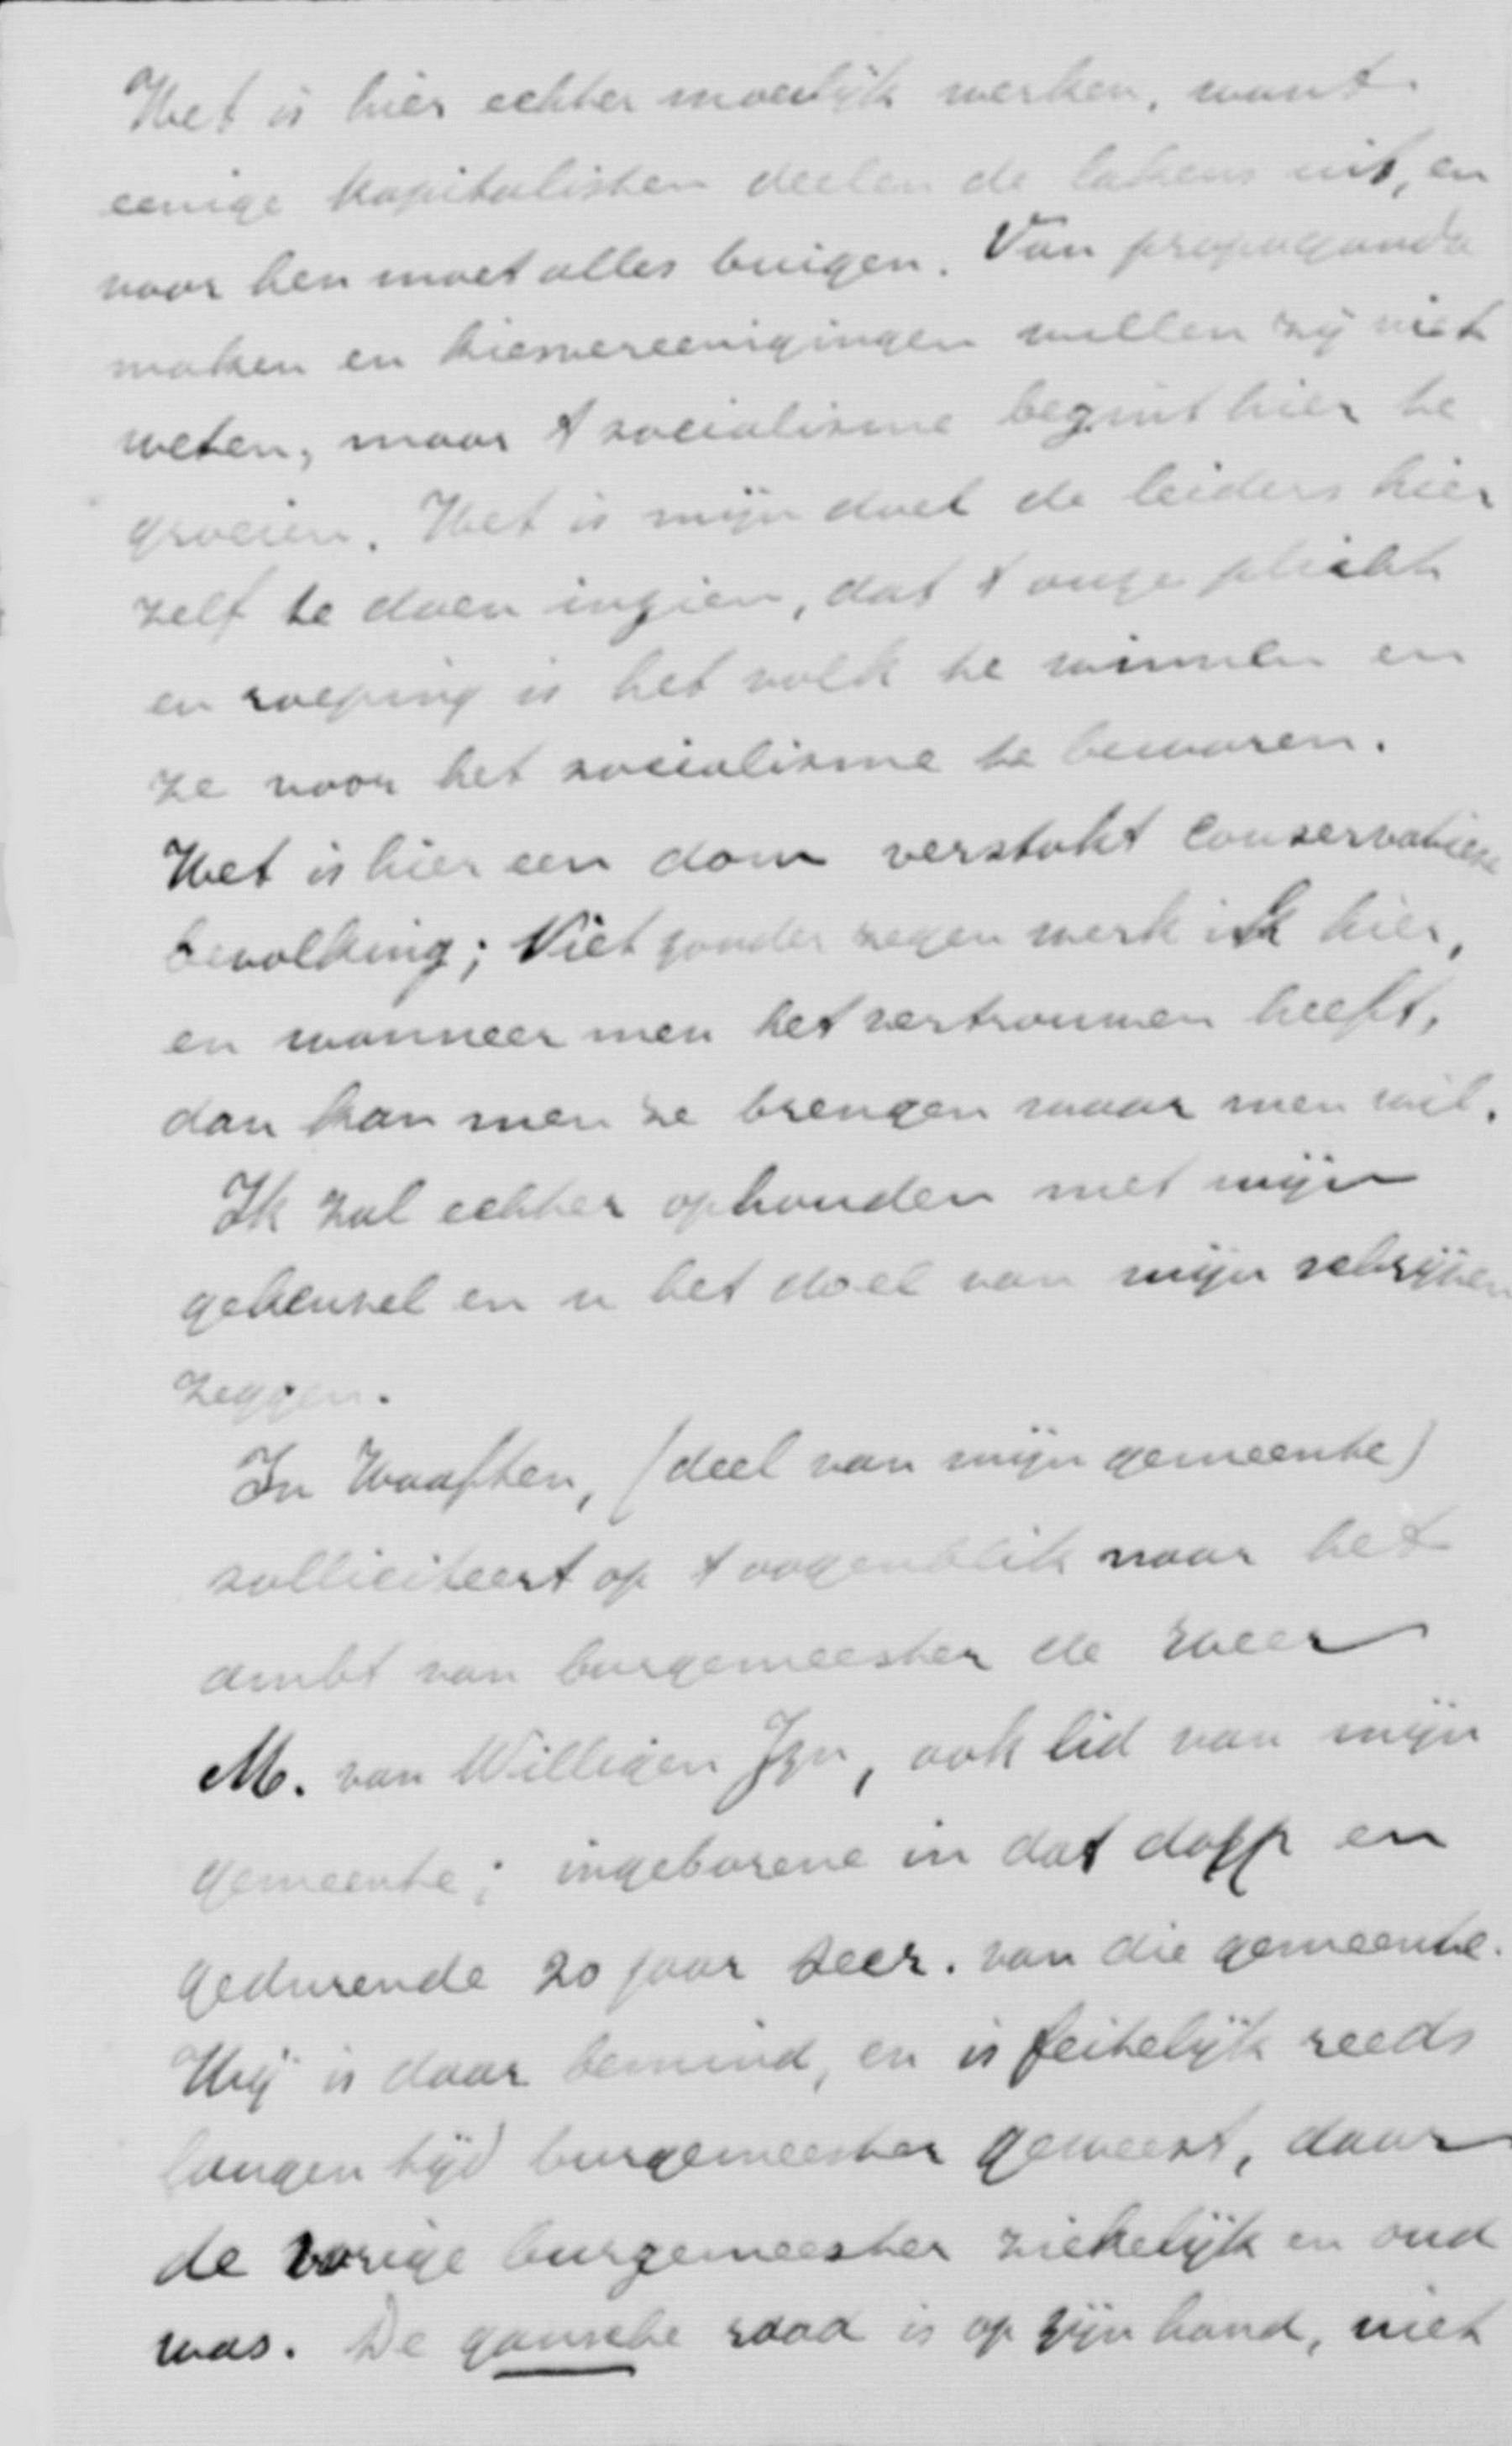 Het is hier echter moeilijk werken, want
eenige kapitalisten deelen de lakens uit, en
voor hen moet alles buigen. Van propaganda
maken en kiesvereenigingen willen zij niet
weten, maar 't socialisme begint hier te
groeien. Het is mijn doel de leiders hier
zelf te doen inzien, dat 't onze plicht
en roeping is het volk te winnen en
ze voor het socialisme te bewaren.
Het is hier een dom verstokt conservatieve
bevolking; Niet zonder zegen werk ik hier,
en wanneer men het vertrouwen heeft,
dan kan men ze brengen waar men wil.
Ik zal echter ophouden met mijn
gekeuvel en u het doel van mijn schrijven
zeggen.
In Haaften, (deel van mijn gemeente)
solliciteert op 't oogenblik naar het
ambt van burgemeester de Heer
M. van Willigen Jzn, ook lid van mijn
gemeente; ingeborene in dat dorp en
gedurende 20 jaar secr. van die gemeente.
Hij is daar bemind, en is feitelijk reeds
langen tijd burgemeester geweest, daar
de vorige burgemeester ziekelijk en oud
was. De gansche raad is op zijn hand, niet